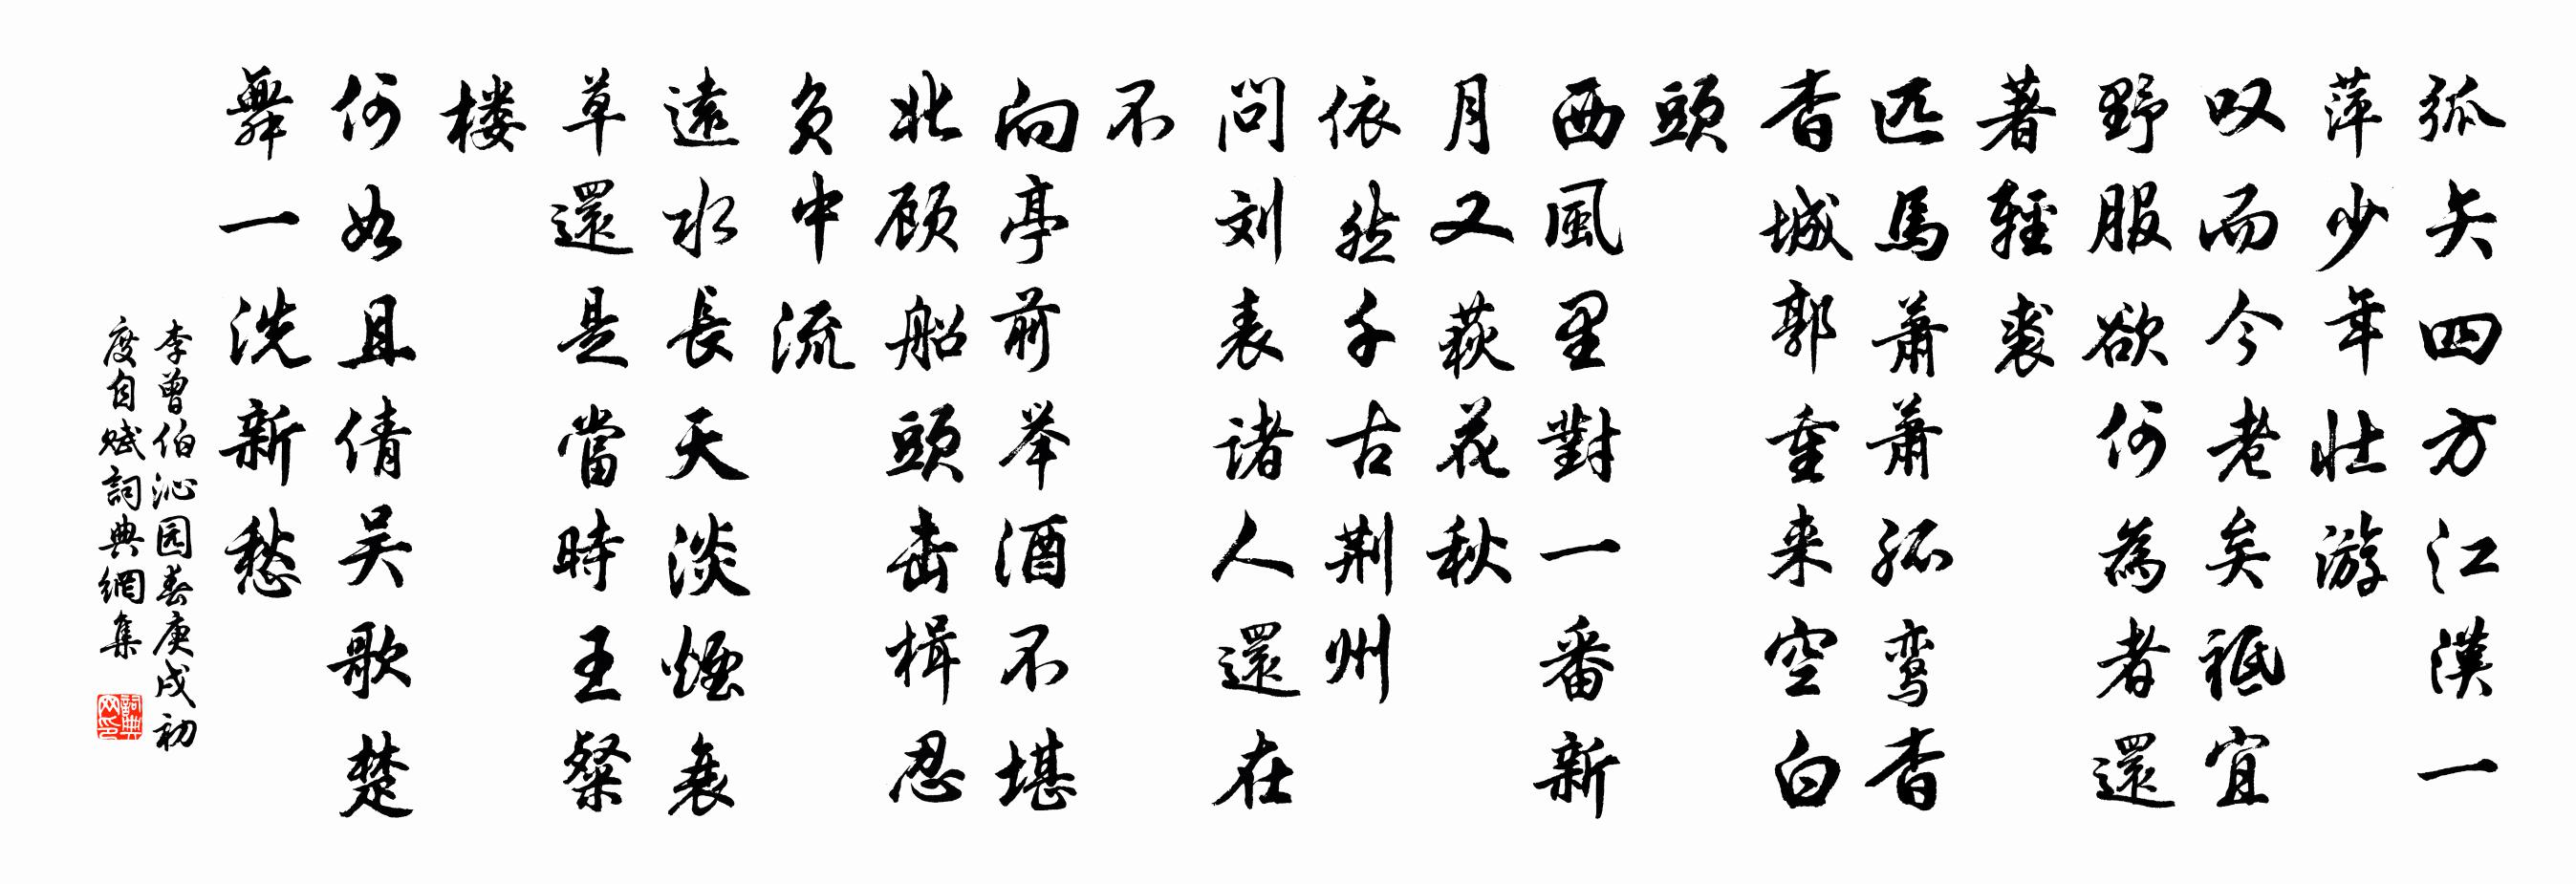 弧矢四方江漢一
萍少年壮游
叹而今老矣祗宜
野服欲何為者還
著輕裘
匹馬萧萧孤鸾杳
杳城郭重来空白
頭
西風里對一番新
月又萩花秋
依然千古荆州
問刘表诸人還在
不
向亭前举酒不堪
北顾船頭击楫忍
负中流
遠水長天淡煙衰
草還是當時王粲
楼
何如且倩吴歌楚
舞一洗新愁
李曾伯沁园春庚戌初
度自赋詞典網集
詞典网印